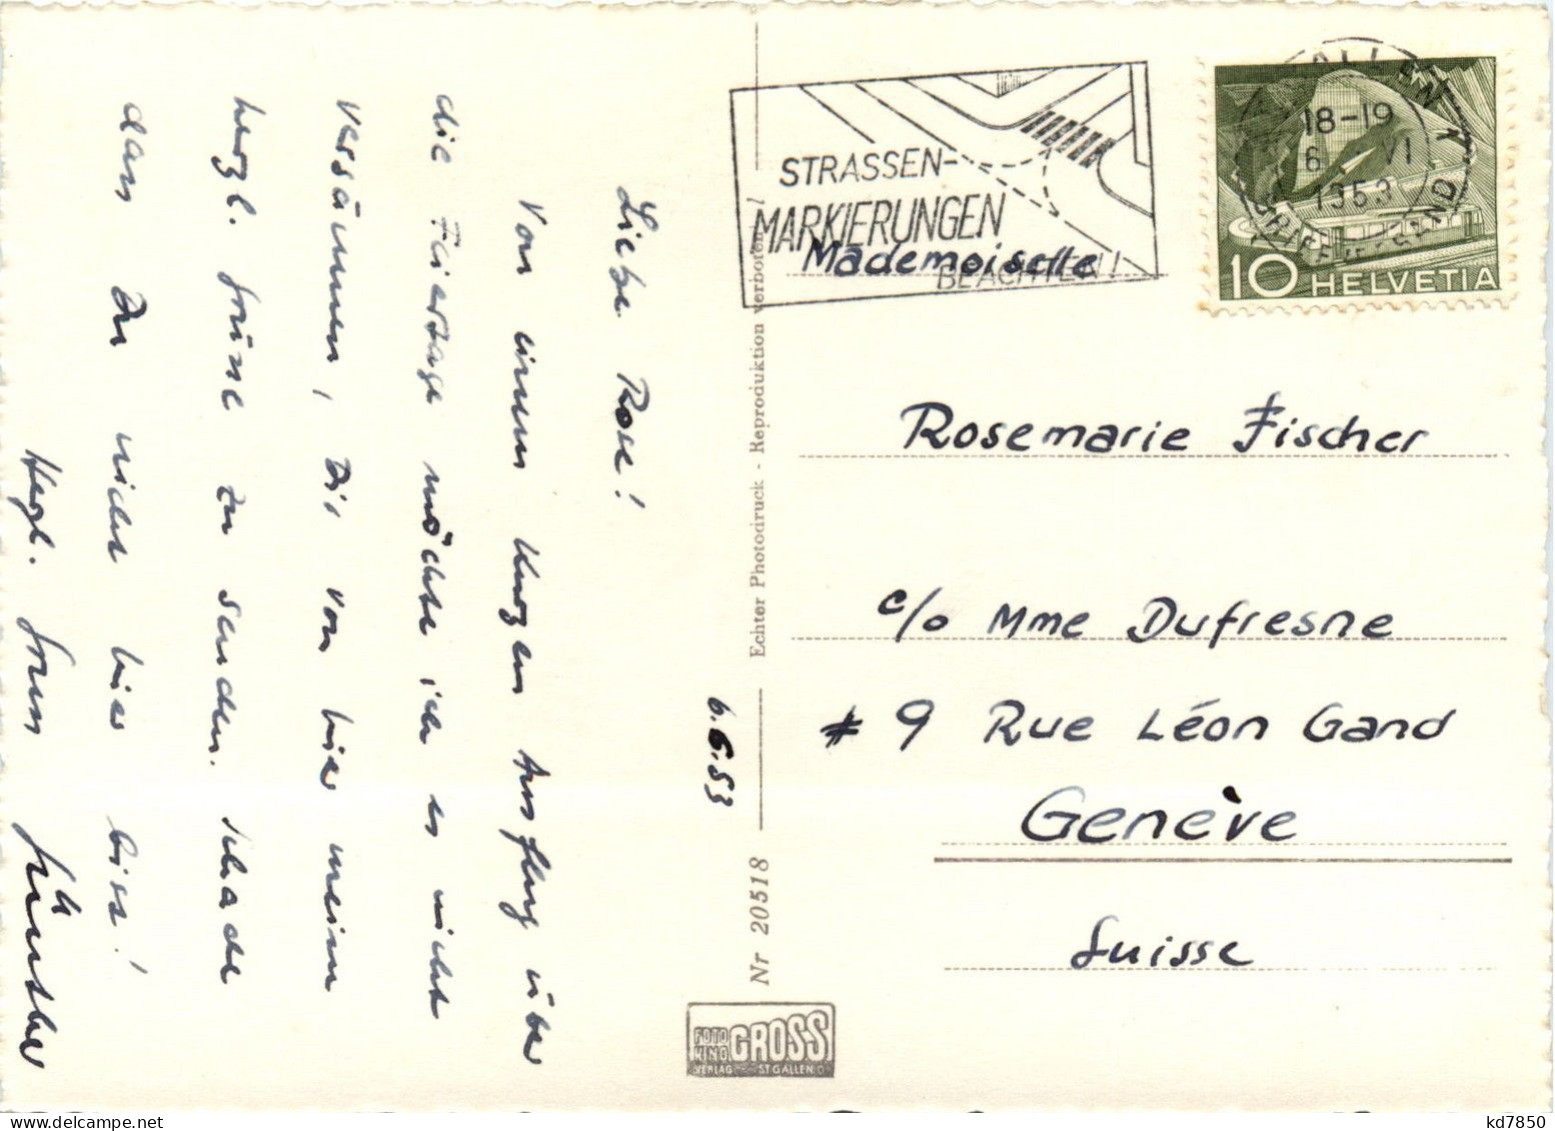 6.6.53
Liebe Rose!
Von einem kurzen Ausflug über
die Feiertage möchte ich es nicht
versäumen, Dir von hier meine
herzl. Grüsse zu senden. Schade
dass Du nicht hier bist!
Herzl. Gruss Günther
Echter Photodruck - Reproduktion verboten!
Nr 20518
FOTO KINO GROSS
VERLAG ST GALLEN
STRASSEN-
MARKIERUNGEN
BEACHTEN!
ALLEN 1
18-19
6. VI
1953
BRIEFVERSAND
10 HELVETIA
Mademoiselle
Rosemarie Fischer
c/o Mme Dufresne
9 Rue Léon Gand
Genève
Suisse
kd7850